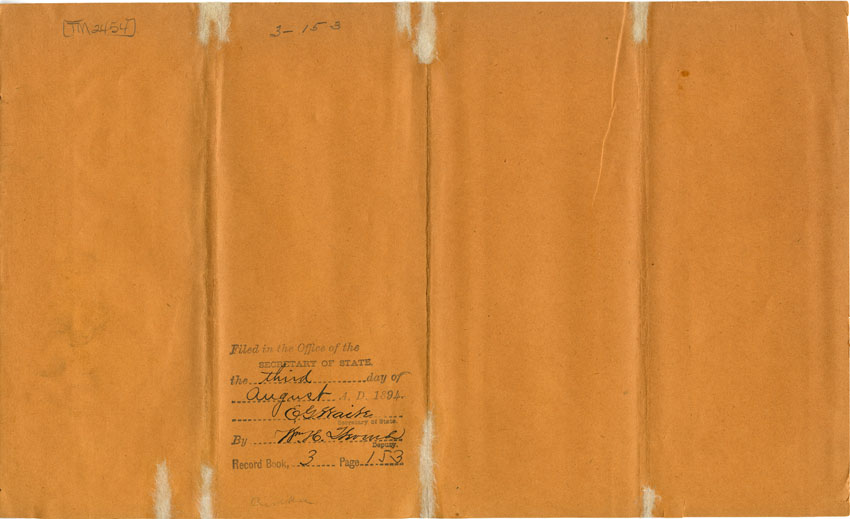 [TM 2454]
3-153
Filed in the Office of the
SECRETARY OF STATE.
the third day of
August A. D. 1894.
E G Waite
Secretary of State.
By Wm H.
Deputy.
Record Book, 3 Page 153